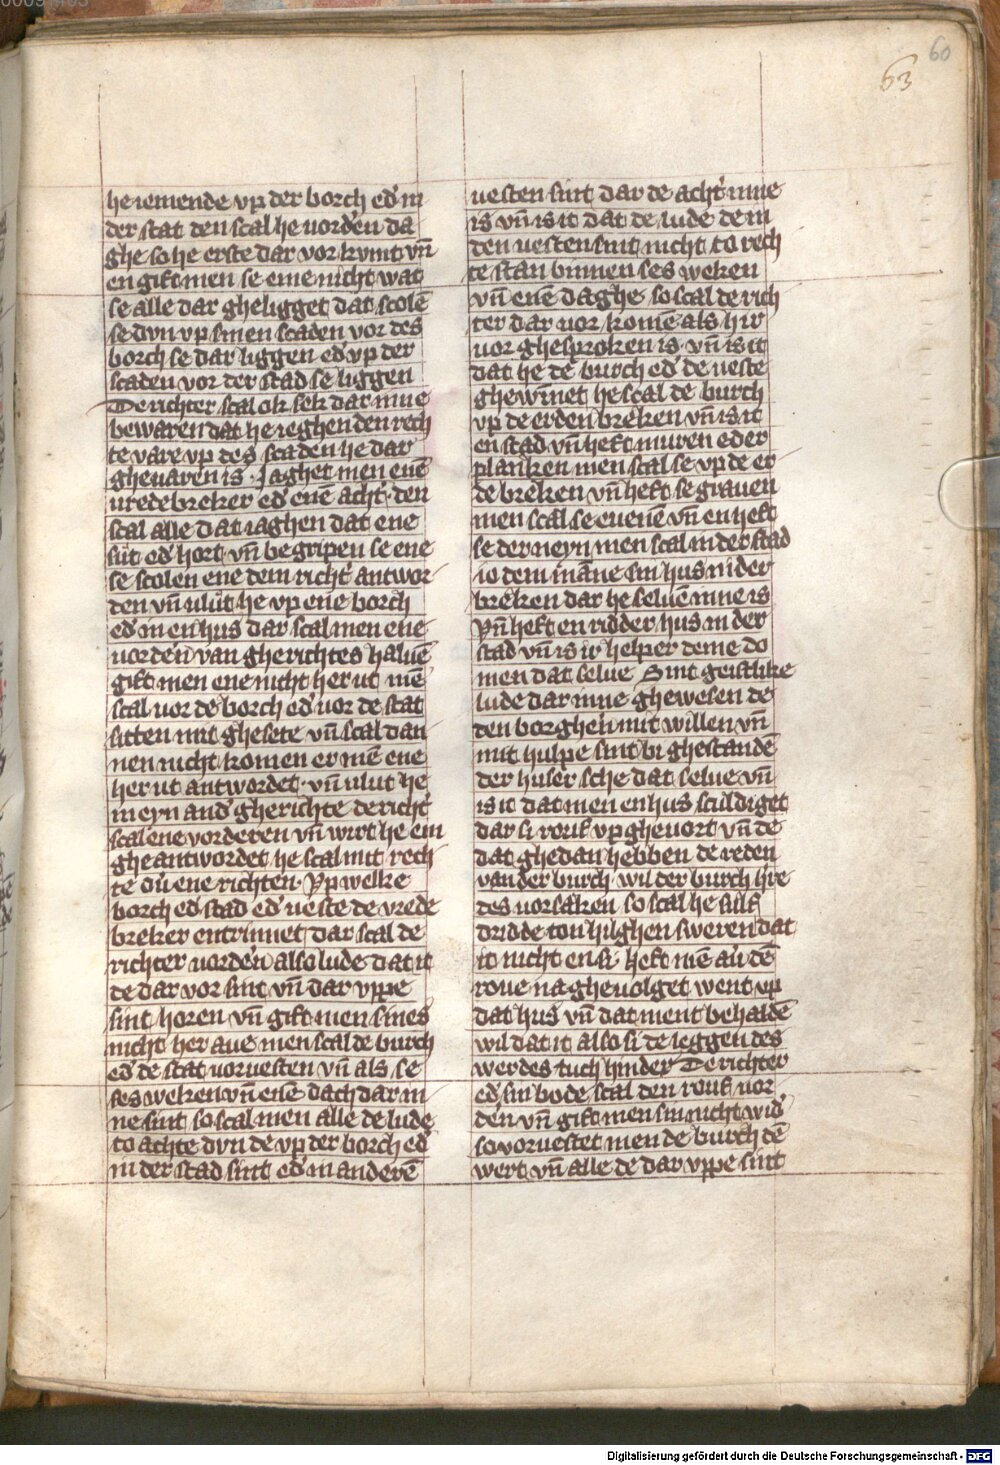 60
63
he iemende vp der borch ed' in
der stat den scal he uord'en da
ghe so he erste dar vor kvmt vn̄
en gift men se eme nicht wat
se alle dar gheligget dat scolē
se dvn vp sinen scaden vor des
borch se dar liggen ed' vp der
scaden vor der stad se liggen
De richter scal ok sek dar mue
bewaren dat he ieghen den rech
te vare vp des scaden he dar
gheuaren is · Jaghet men enē
vredebreker ed' enē acht'· den
scal alle dat iaghen dat ene
sut ed' hort vn̄ begripen se ene
se scolen ene dem richt' antwor
den vn̄ ulut he vp ene borch
ed' in en hus dar scal men ene
uord'en van gherichtes haluē
gift men ene nicht her ut mē
scal uor de borch ed' uor de stat
sitten mit ghesete vn̄ scal dan
nen nicht komen er mē ene
her ut antwordet · vn̄ ulut he
in eyn and' gherichte de richt'
scal ene vorderen vn̄ wirt he em
gheantwordet he scal mit rech
te ou' ene richten · Vp welke
borch ed' stad ed' ueste de vrede
breker entrinnet dar scal de
richter uord'en also lude dat it
de dar vor sint vn̄ dar vppe
sint horen vn̄ gift men sines
nicht her aue men scal de burch
ed' de stat uoruesten vn̄ als se
ses weken vn̄ enē dach dar in
ne sint so scal men alle de lude
to achte dvn de vp der borch ed'
in der stad sint ed' in anderē
uesten sint dar de acht' inne
is vn̄ is it dat de lude de in
den uesten sint nicht to rech
te stan binnen ses weken
vn̄ enē daghe so scal de rich
ter dar uor komē als hir
uor ghesproken is · vn̄ is it
dat he de burch ed' de ueste
ghewīnet he scal de burch
vp de erden breken vn̄ is it
en stad vn̄ heft muren eder
planken men scal se vp de er
de breken vn̄ heft se grauen
men scal se euenē vn̄ en heft
se der neyn men scal in der stad
io dem māne sin hus nider
breken dar he seluē inne is
Vn̄ heft en ridder hus in der
stad vn̄ is ir helper deme do
men dat selue Sint geistlike
lude dar inne ghewesen de
den borghen mit willen vn̄
mit hulpe sint bi ghestandē
der huser sche dat selue vn̄
is it dat men en hus sculdiget
dar si rouf vp gheuort vn̄ de
dat ghedan hebben de reden
van der burch wil der burch h're
des uorsaken so scal he sulf
dridde ton hilghen sweren dat
it nicht en si heft mē au' dē
roue na gheuolget went vp
dat hus vn̄ dat ment behaldē
wil dat it also si de leggen des
werdes tuch hinder De richter
ed' sin bode scal den rouf uor
d'en vn̄ gift men sin nicht wid'
so voruestet men de burch dē
wert vn̄ alle de dar vppe sint
Digitalisierung gefördert durch die Deutsche Forschungsgemeinschaft - DFG